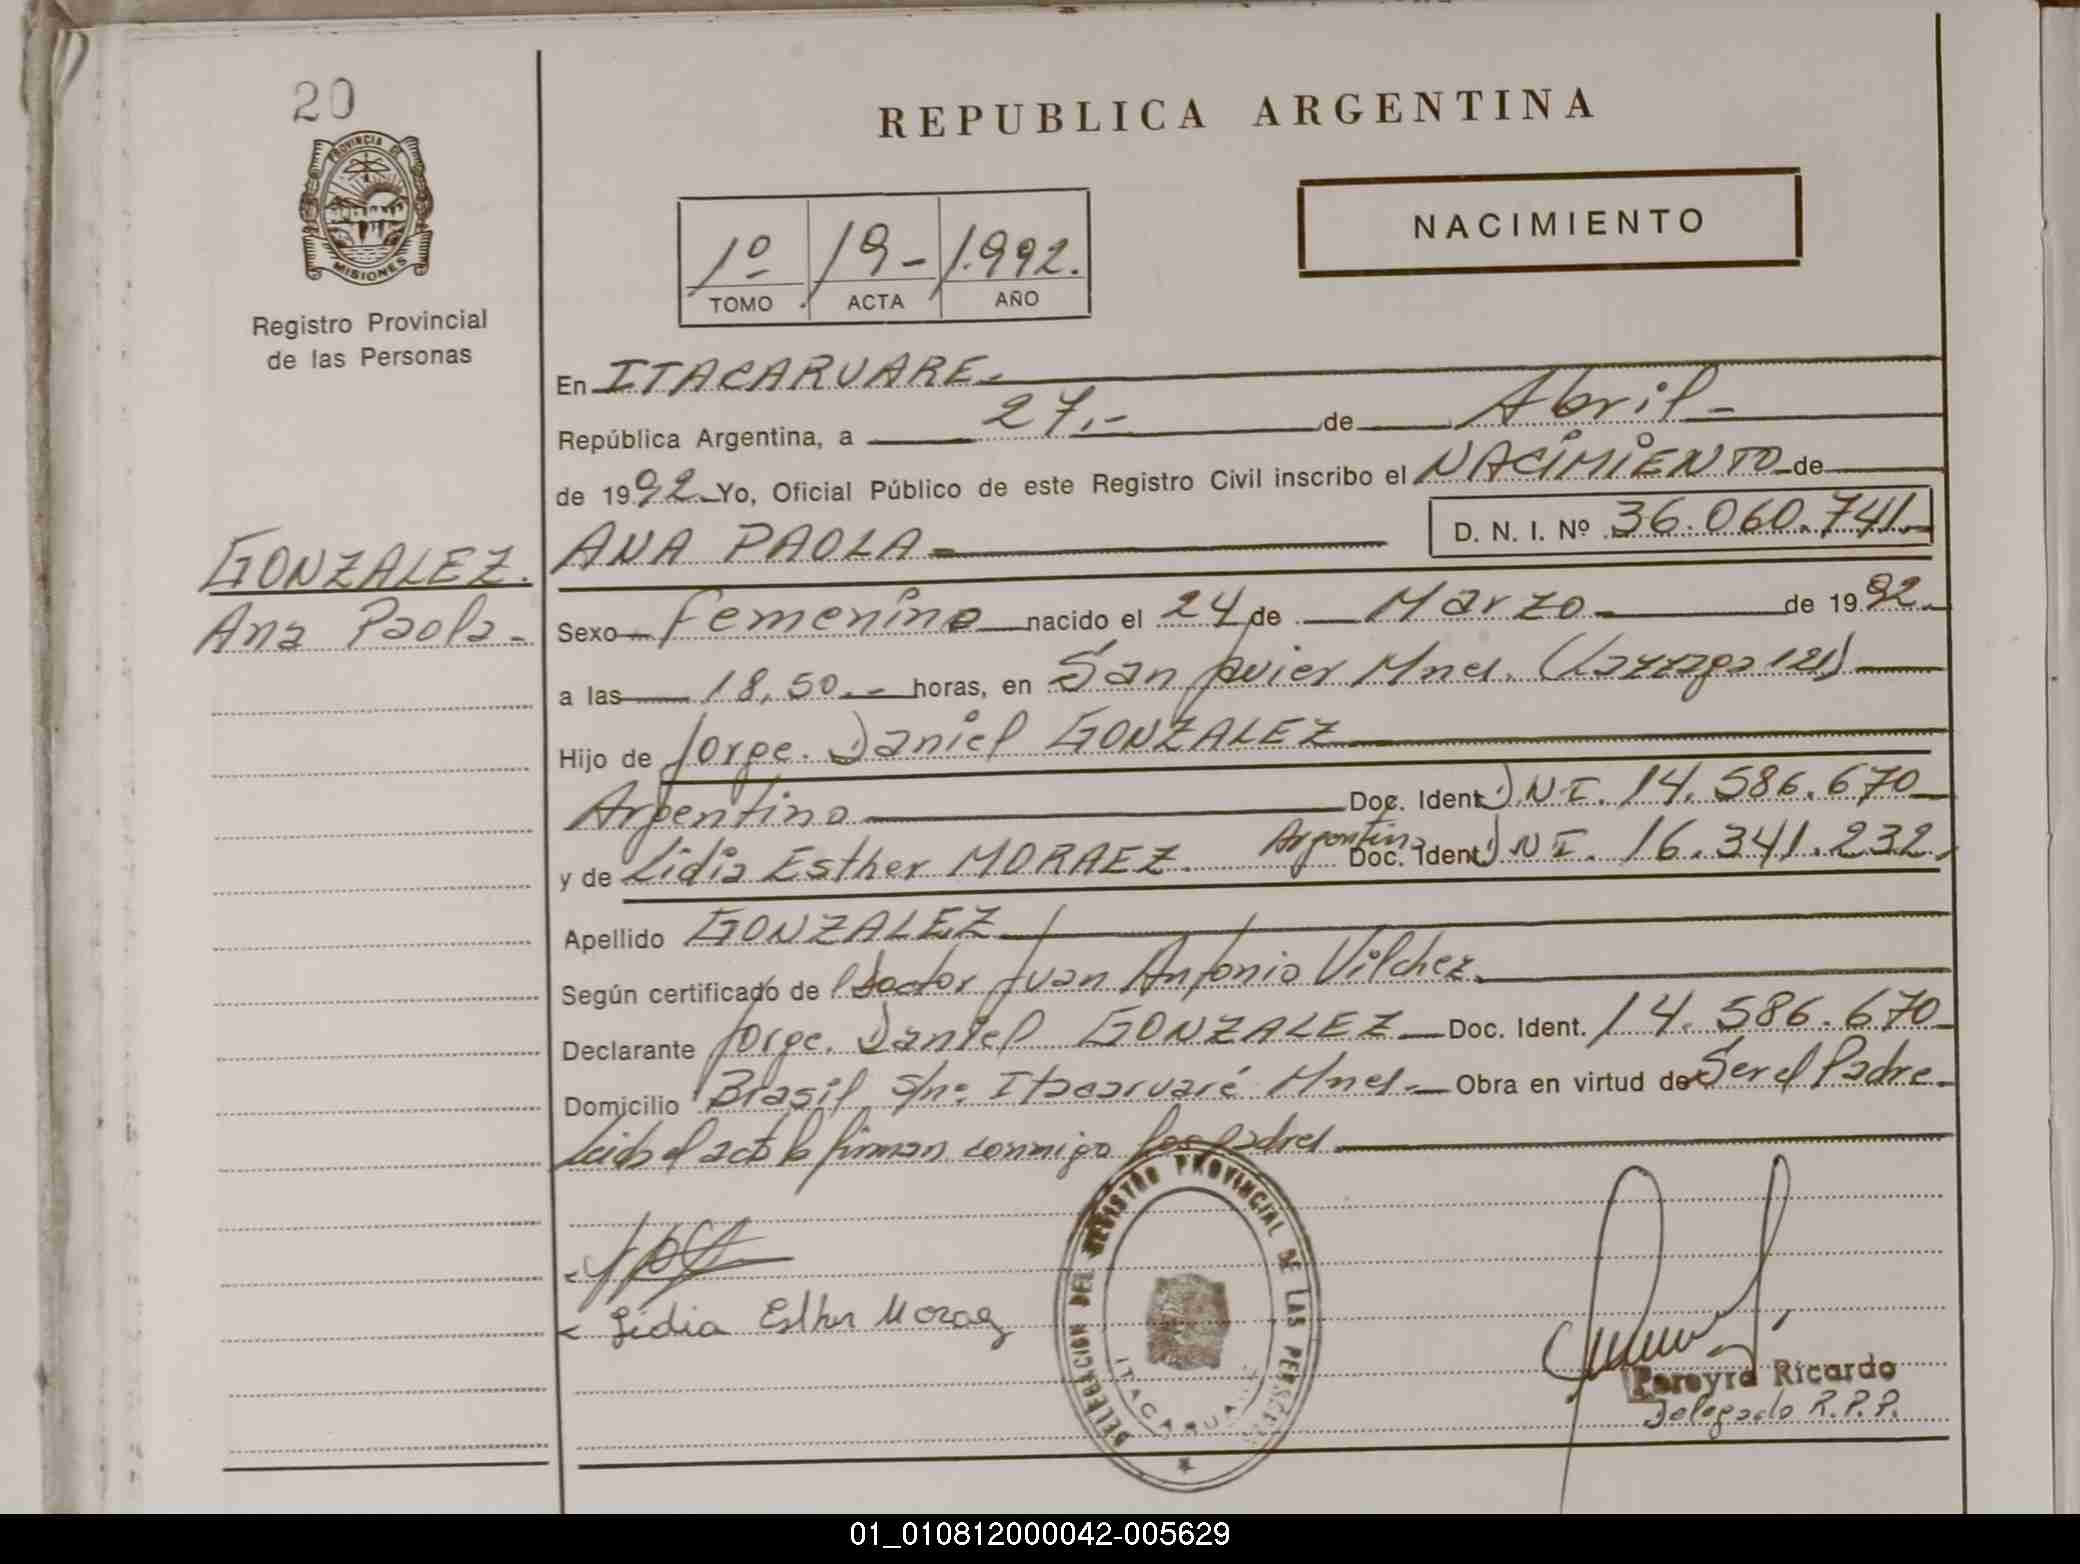 20
PROVINCIA DE
MISIONES
Registro Provincial
de las Personas
GONZALEZ.
Ana Paola-
REPUBLICA ARGENTINA
NACIMIENTO
1º 19- 1.992.
TOMO ACTA AÑO
En ITACARUARE.-
República Argentina, a 27.- de Abril-
de 1992 Yo, Oficial Público de este Registro Civil inscribo el NACIMIENTO de
ANA PAOLA- D. N. I. Nº 36.060.741.-
Sexo Femenino nacido el 24 de Marzo- de 1992.
a las 18,50.- horas, en San Javier Mnes. (121)
Hijo de Jorge. Daniel GONZALEZ
Argentino Doc. Ident. D.N.I. 14.586.670
y de Lidia Esther MORAEZ. Argentina Doc. Ident. D.N.I. 16.341.232,
Apellido GONZALEZ
Según certificado de Doctor Juan Antonio Vilchez.
Declarante Jorge. Daniel GONZALEZ Doc. Ident. 14.586.670
Domicilio Brasil s/nº Itacaruaré Mnes.- Obra en virtud de Ser el Padre-
Leido el acta la firman conmigo los padres.
Lidia Esther Moraez
DELEGACION DEL REGISTRO PROVINCIAL DE LAS PERSONAS
ITACARUARE
Pereyra Ricardo
Delegado R.P.P.
01_010812000042-005629